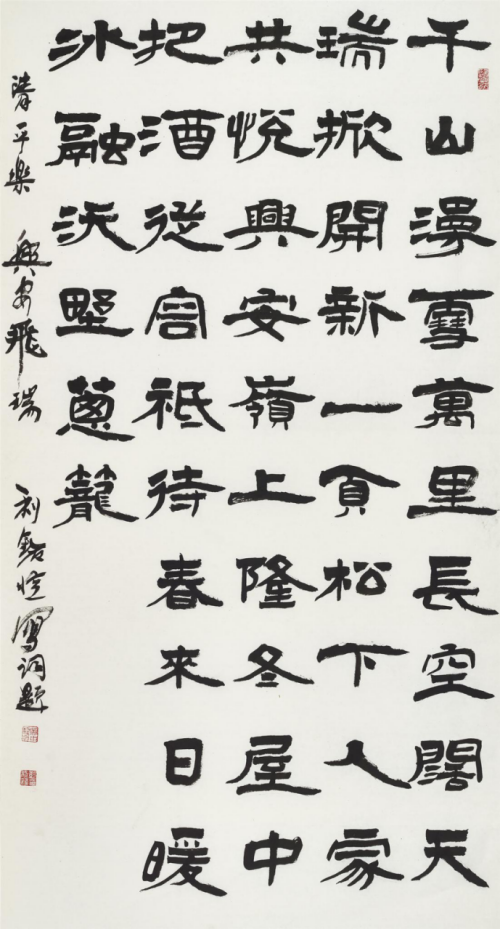 千山漫雪萬里長空闊天
瑞掀開新一頁松下人家
共悅興安嶺上隆冬屋中
把酒從容祗待春來日暖
冰融沃墅蔥籠
清平樂 興安飛瑞 利 寫詞題